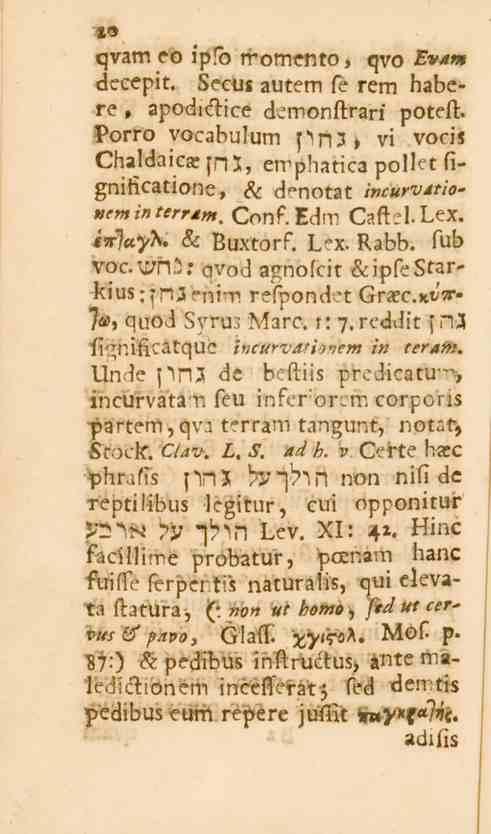 20
qvam eo ipſo momento, qvo Evam
decepit. Secus autem ſe rem habe-
re, apodictice demonſtrari poteſt.
Porro vocabulum גחון, vi vocis
Chaldaicæ גחן, emphatica pollet ſi-
gnificatione, & denotat incurvatio-
nem in terram. Conf. Edm Caſtel. Lex.
ἑπ]αγλ. & Buxtorf. Lex. Rabb. ſub
voc. נחש: qvod agnoſcit & ipſe Star-
kius; גחן enim reſpondet Græc. κύπ-
]ω, quod Syrus Marc. 1: 7. reddit גחן
ſignificatque incurvationem in teram.
Unde גחון de beſtiis predicatum,
incurvatam ſeu inferiorem corporis
partem, qva terram tangunt, notat,
Stock. Clav. L. S. ad h. v. Certe hæc
phraſis הולך על גחון non niſi de
reptilibus legitur, cui opponitur
הולך על ארבע Lev. XI: 42. Hinc
facillime probatur, pœnam hanc
fuiſſe ſerpentis naturalis, qui eleva-
ta ſtatura, (: non ut homo, ſed ut cer-
vus & pavo, Glaſſ. χγιςολ. Moſ. p.
87:) & pedibus inſtructus, ante ma-
ledictionem inceſſerat; ſed demtis
pedibus eum repere juſſit
adiſis